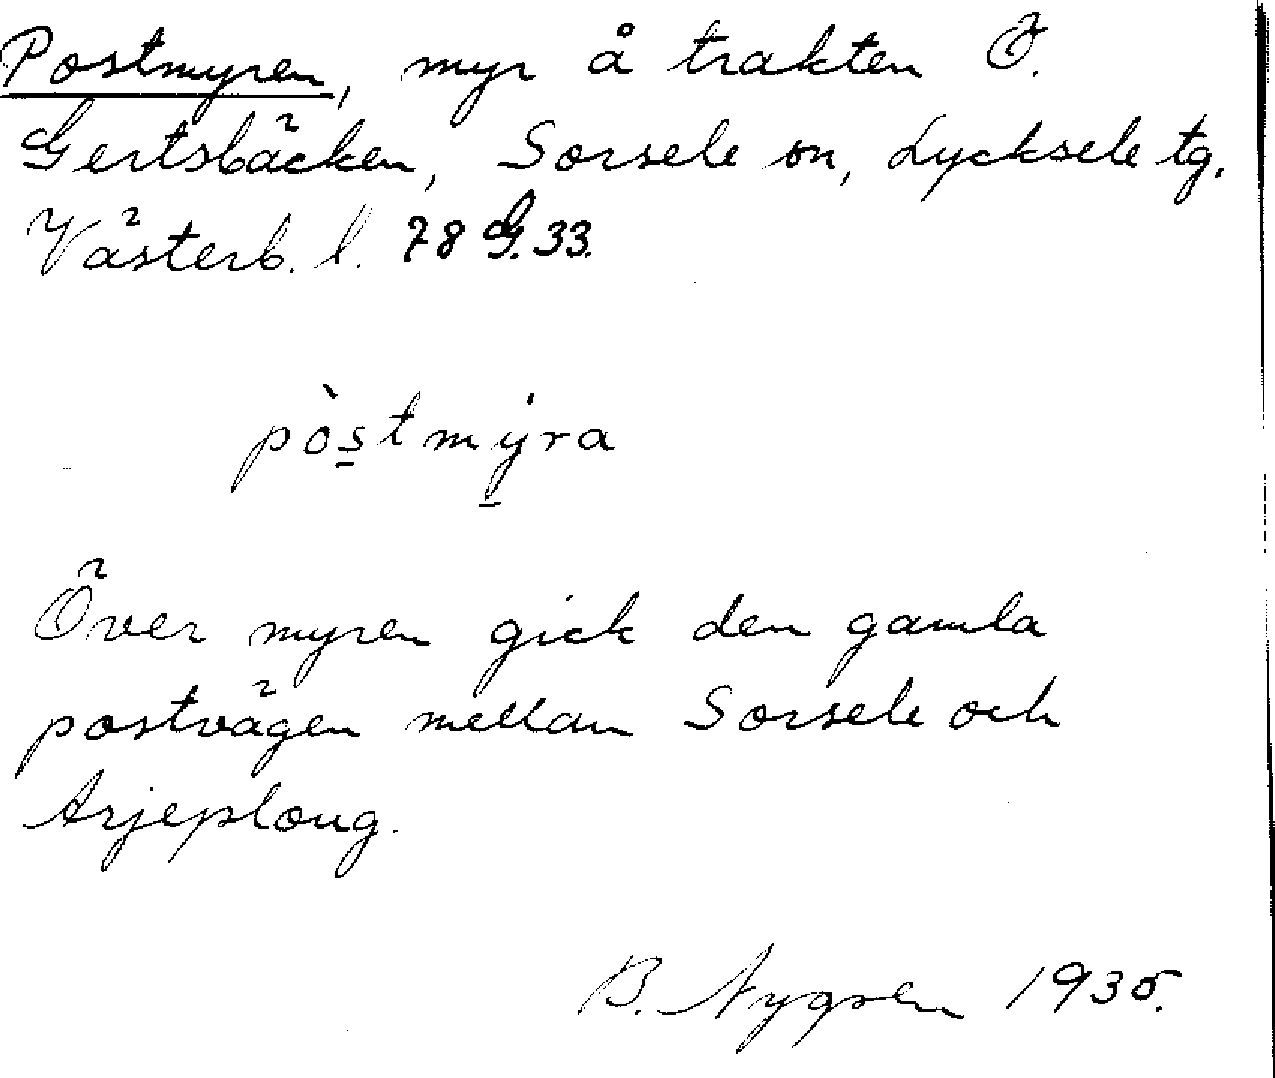 Postmyren, myr å trakten Ö.
Gertsbäcken, Sorsele sn, Lycksele tg.
Västerb. l. 78 G. 33.
pòs̲tmẏ̲ra
Över myren gick den gamla
postvägen mellan Sorsele och
Arjeploug.
B. Nygren 1935.